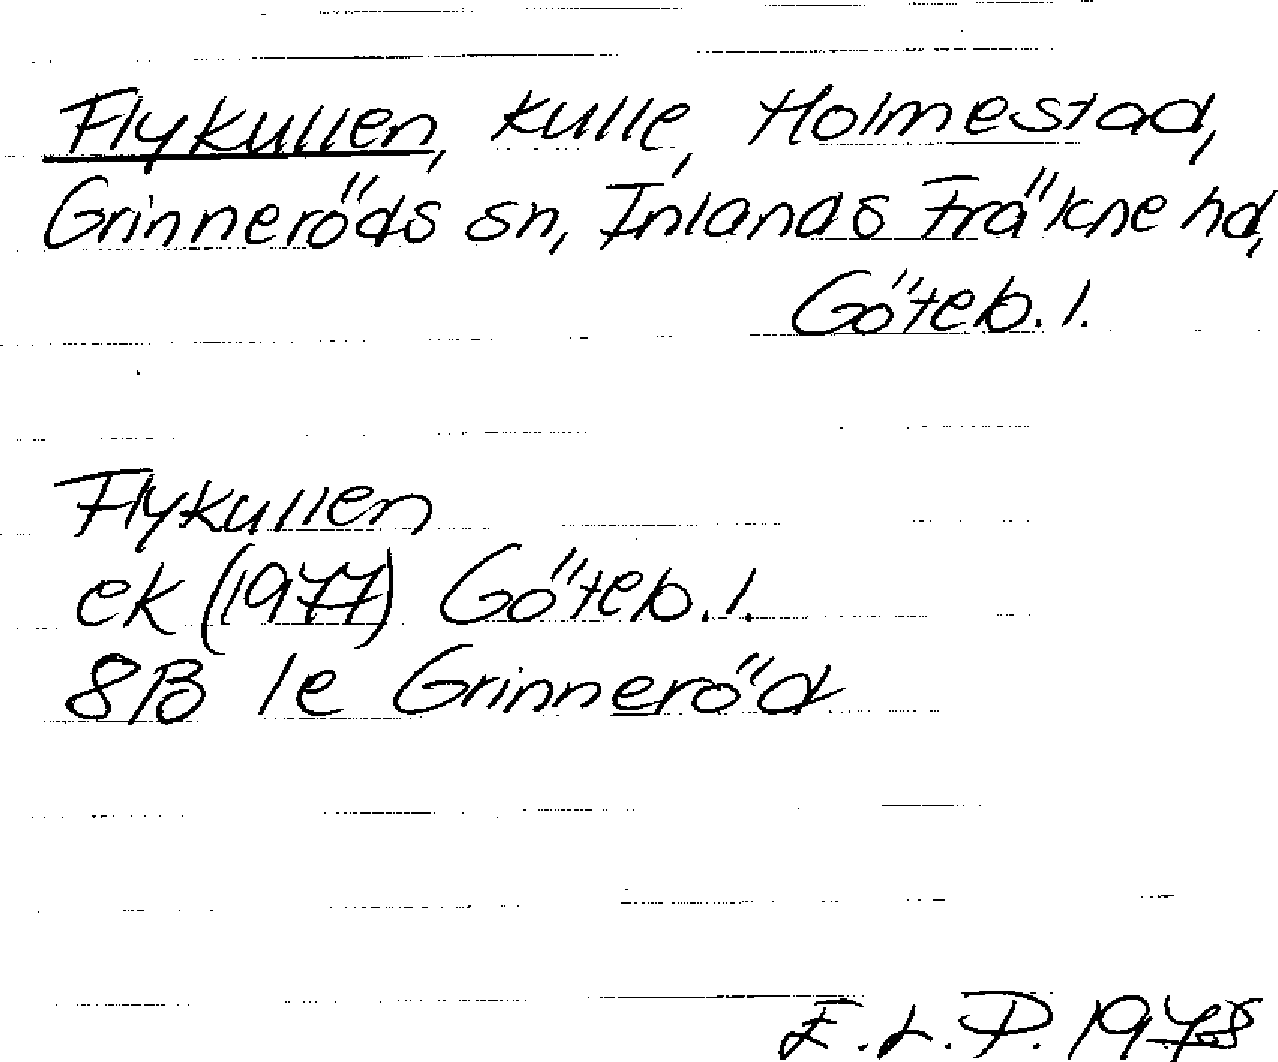 Flykullen, kulle, Holmestad,
Grinneröds sn, Inlands Fräkne hd,
Göteb. l.
Flykullen
ek (1977) Göteb. l.
8B 1e Grinneröd
E.L.P. 1978